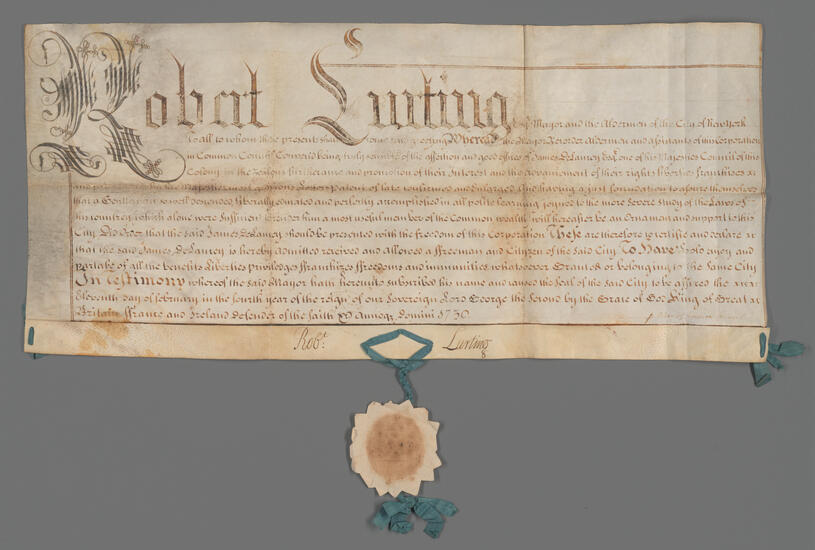 Robert Lurting
Mayor and the Aldermen of the City of New York
To all to whom these present shall come send greeting Whereas the Mayor Recorder Alderman and assistants of this Corporation
in Common Council Convened being truly sensible of the affection and good offices of James DeLancey Esqr one of his Majesties Council of this
Colony in the zealous furtherance and promotion of their Interest and the advancement of their rights liberties franchizes
and his Majesties Letters Patent of late confirmed and Enlarged And having a just foundation to assure themselves
that a Gentleman so well descended liberally educated and perfectly accomplished in all polite learning joyned to the more severe study of the Laws of
his country which alone were sufficient to render him a most usefull member of the Common wealth will hereafter be an Ornament and support to this
City Did Order that the said James DeLancey should be presented with the freedom of this Corporation These are therefore to certifie and declare
that the said James DeLancey is hereby admitted received and allowed a ffreeman and Citizen of the said City To Have hold enjoy and
partake of all the benefits Liberties Priviledges ffranchizes ffreedoms and immunities whatsoever Granted or belonging to the same City
In testimony whereof the said Mayor hath hereunto subscribed his name and caused the Seal of the said City to be affixed the
Eleventh day of february in the fourth year of the reign of our Sovereign Lord George the second by the Grace of God King of Great
Britain ffrance and Ireland defender of the faith &c Annoq Domini 1730
Robt. Lurting